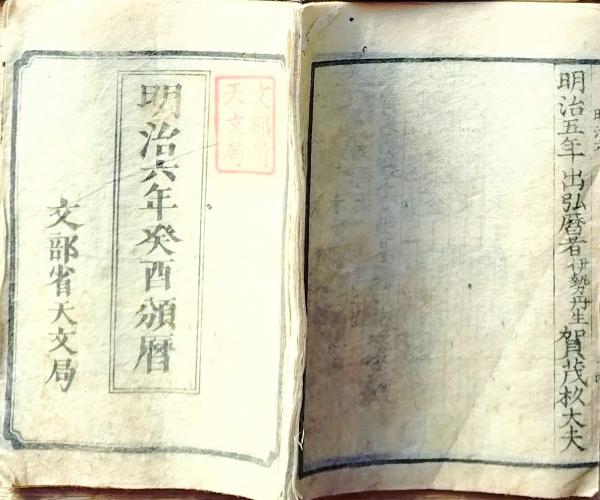 明治五年 出弘暦者 伊勢丹生 賀茂杦大夫
文部省
天文局
明治六年癸酉頒暦
文部省天文局